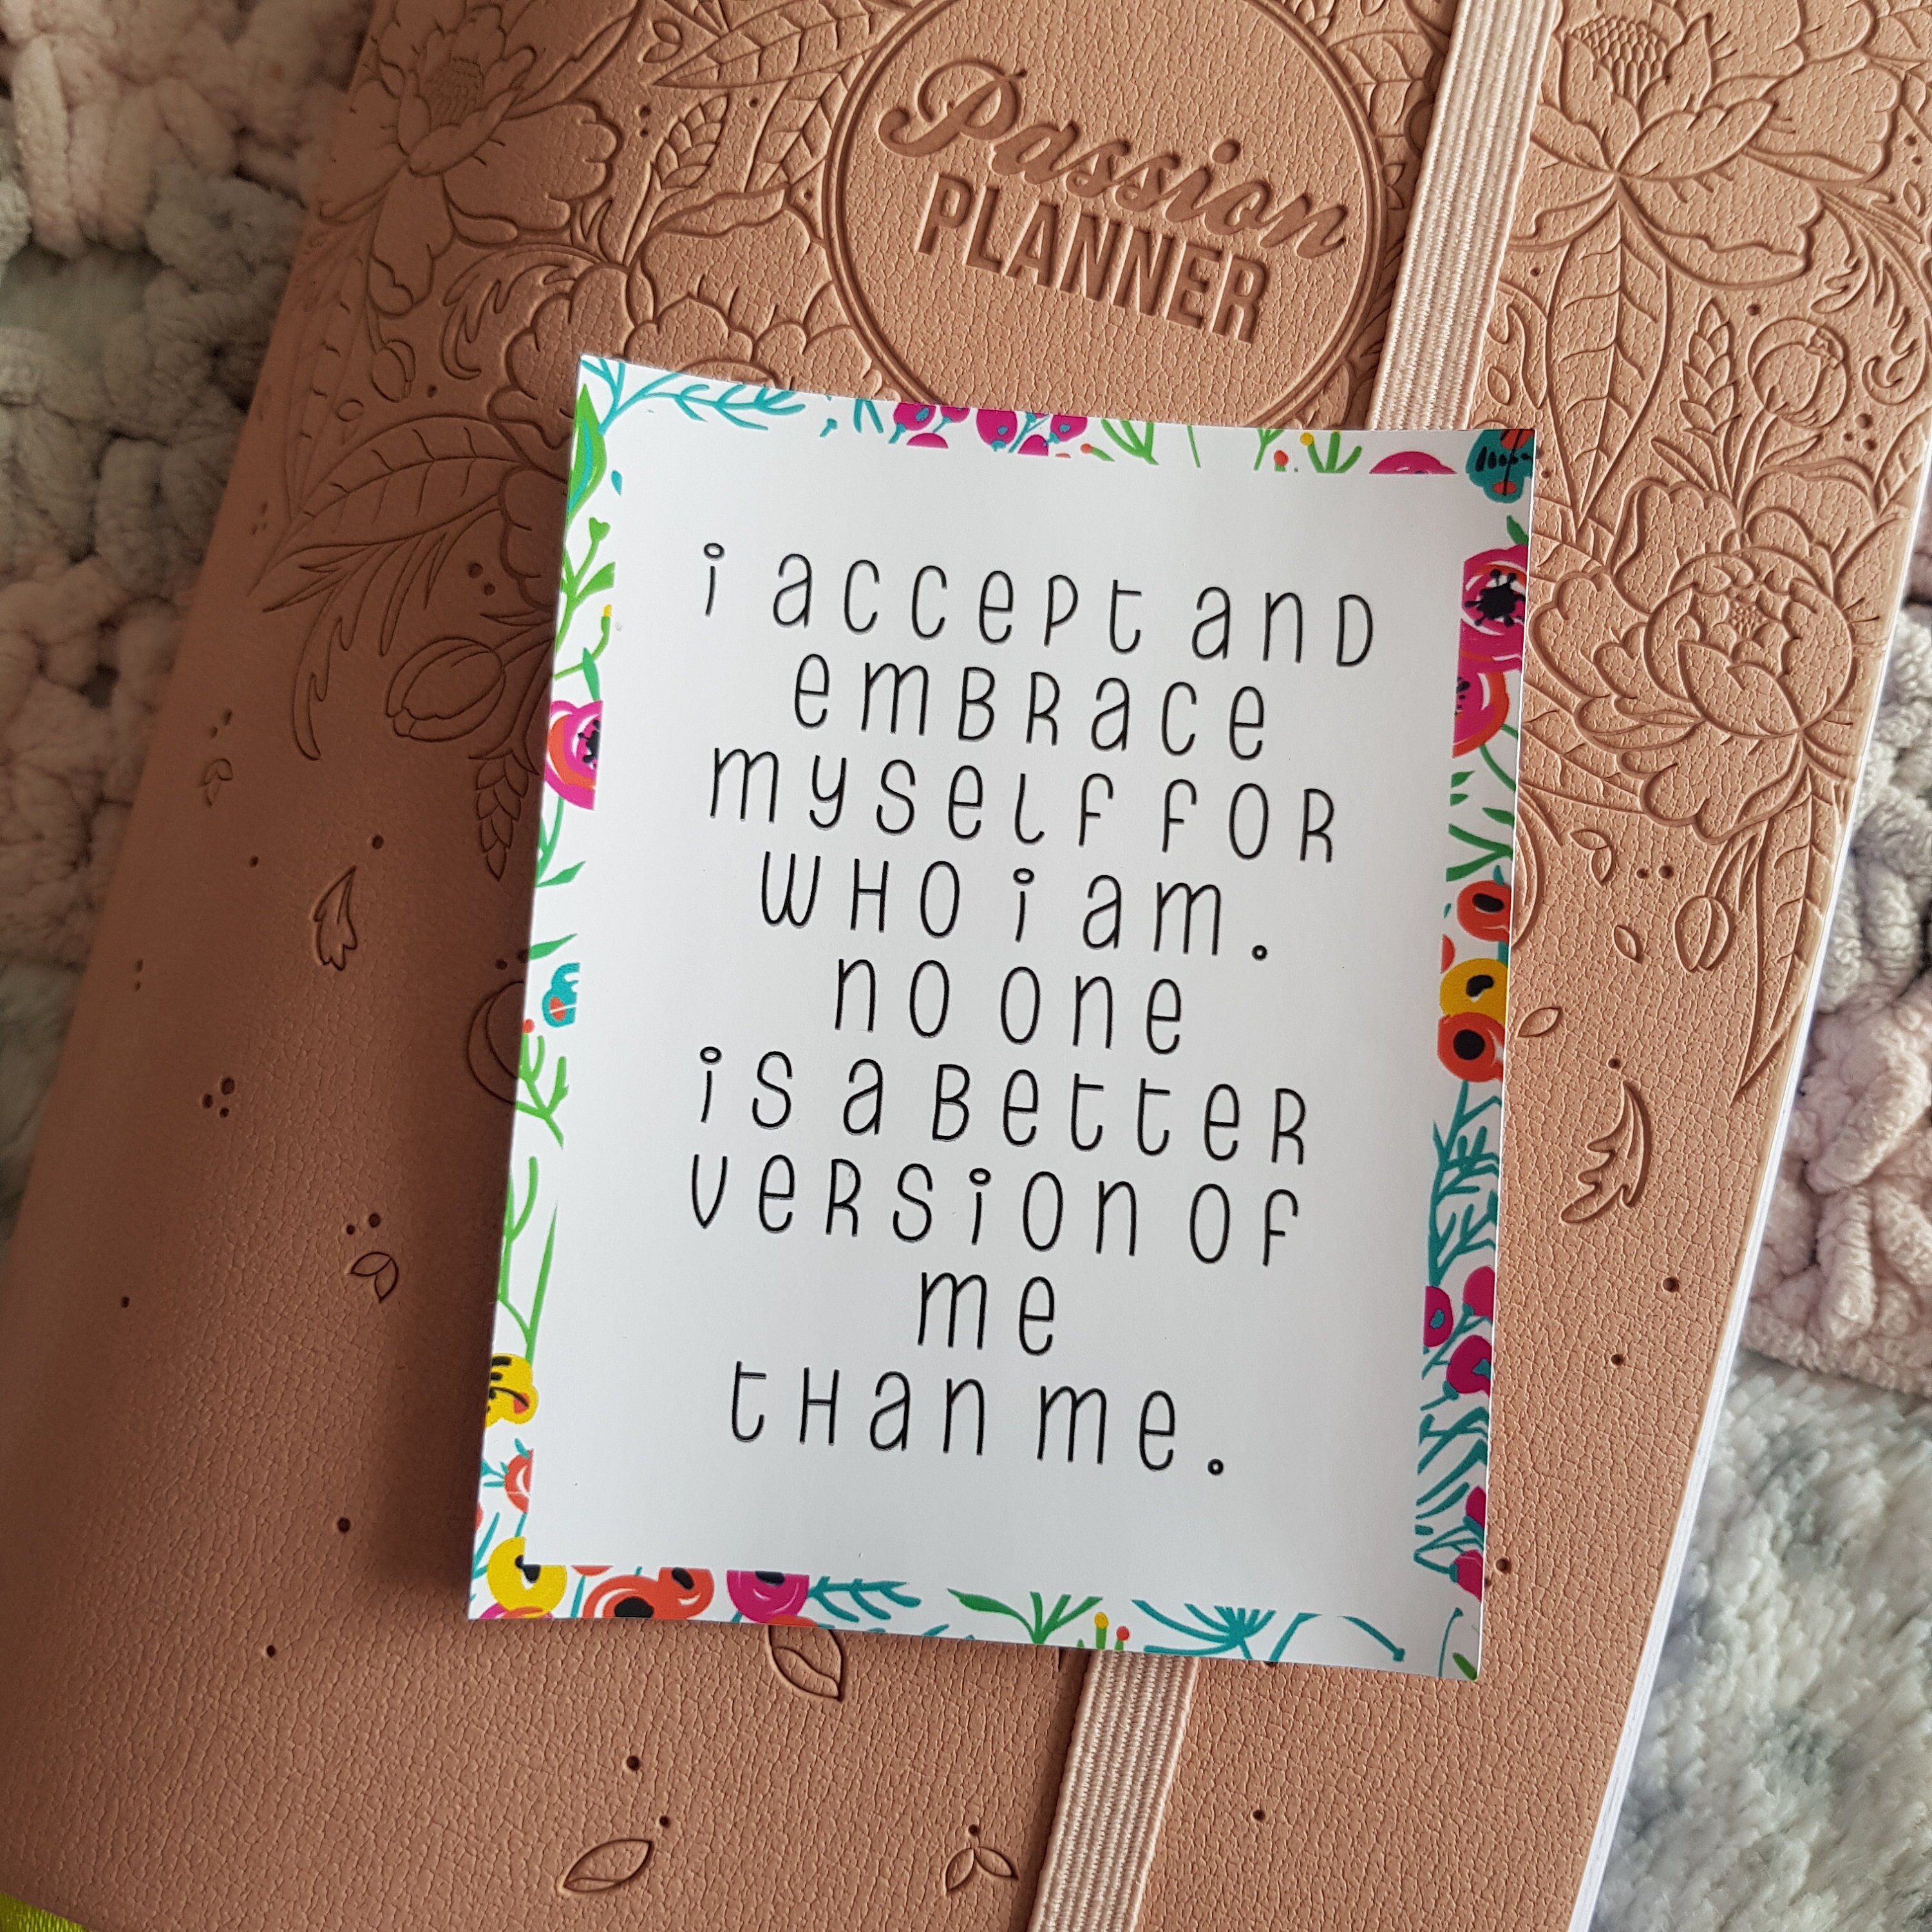 Passion
PLANNER
i accept and
embrace
myself for
who i am.
no one
is a better
version of
me
than me.